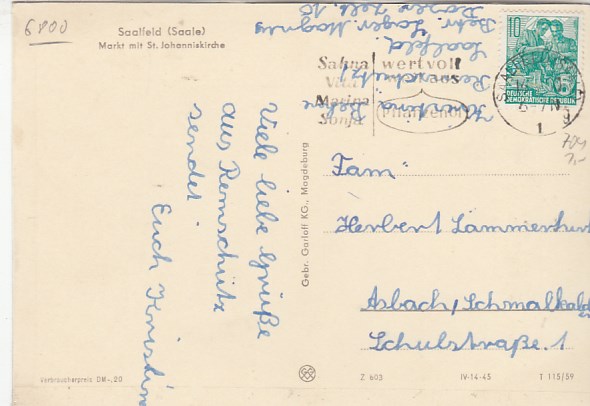 6800
Saalfeld (Saale)
Markt mit St. Johanniskirche
Viele liebe Grüße
aus Remschütz
sendet
Euch Kristina
Gebr. Garloff KG., Magdeburg
Verbraucherpreis DM -,20
Z 603
IV-14-45
T 115/59
Saalfeld,
Remschütz
Sahna
Vita
Marina
Sonja
wertvoll
aus
Pflanzenöl
10
5
DEUTSCHE
DEMOKRATISCHE REPUBLIK
1
Fam
Herbert Lämmerhirt
Asbach/Schmalkalden
Schulstraße. 1